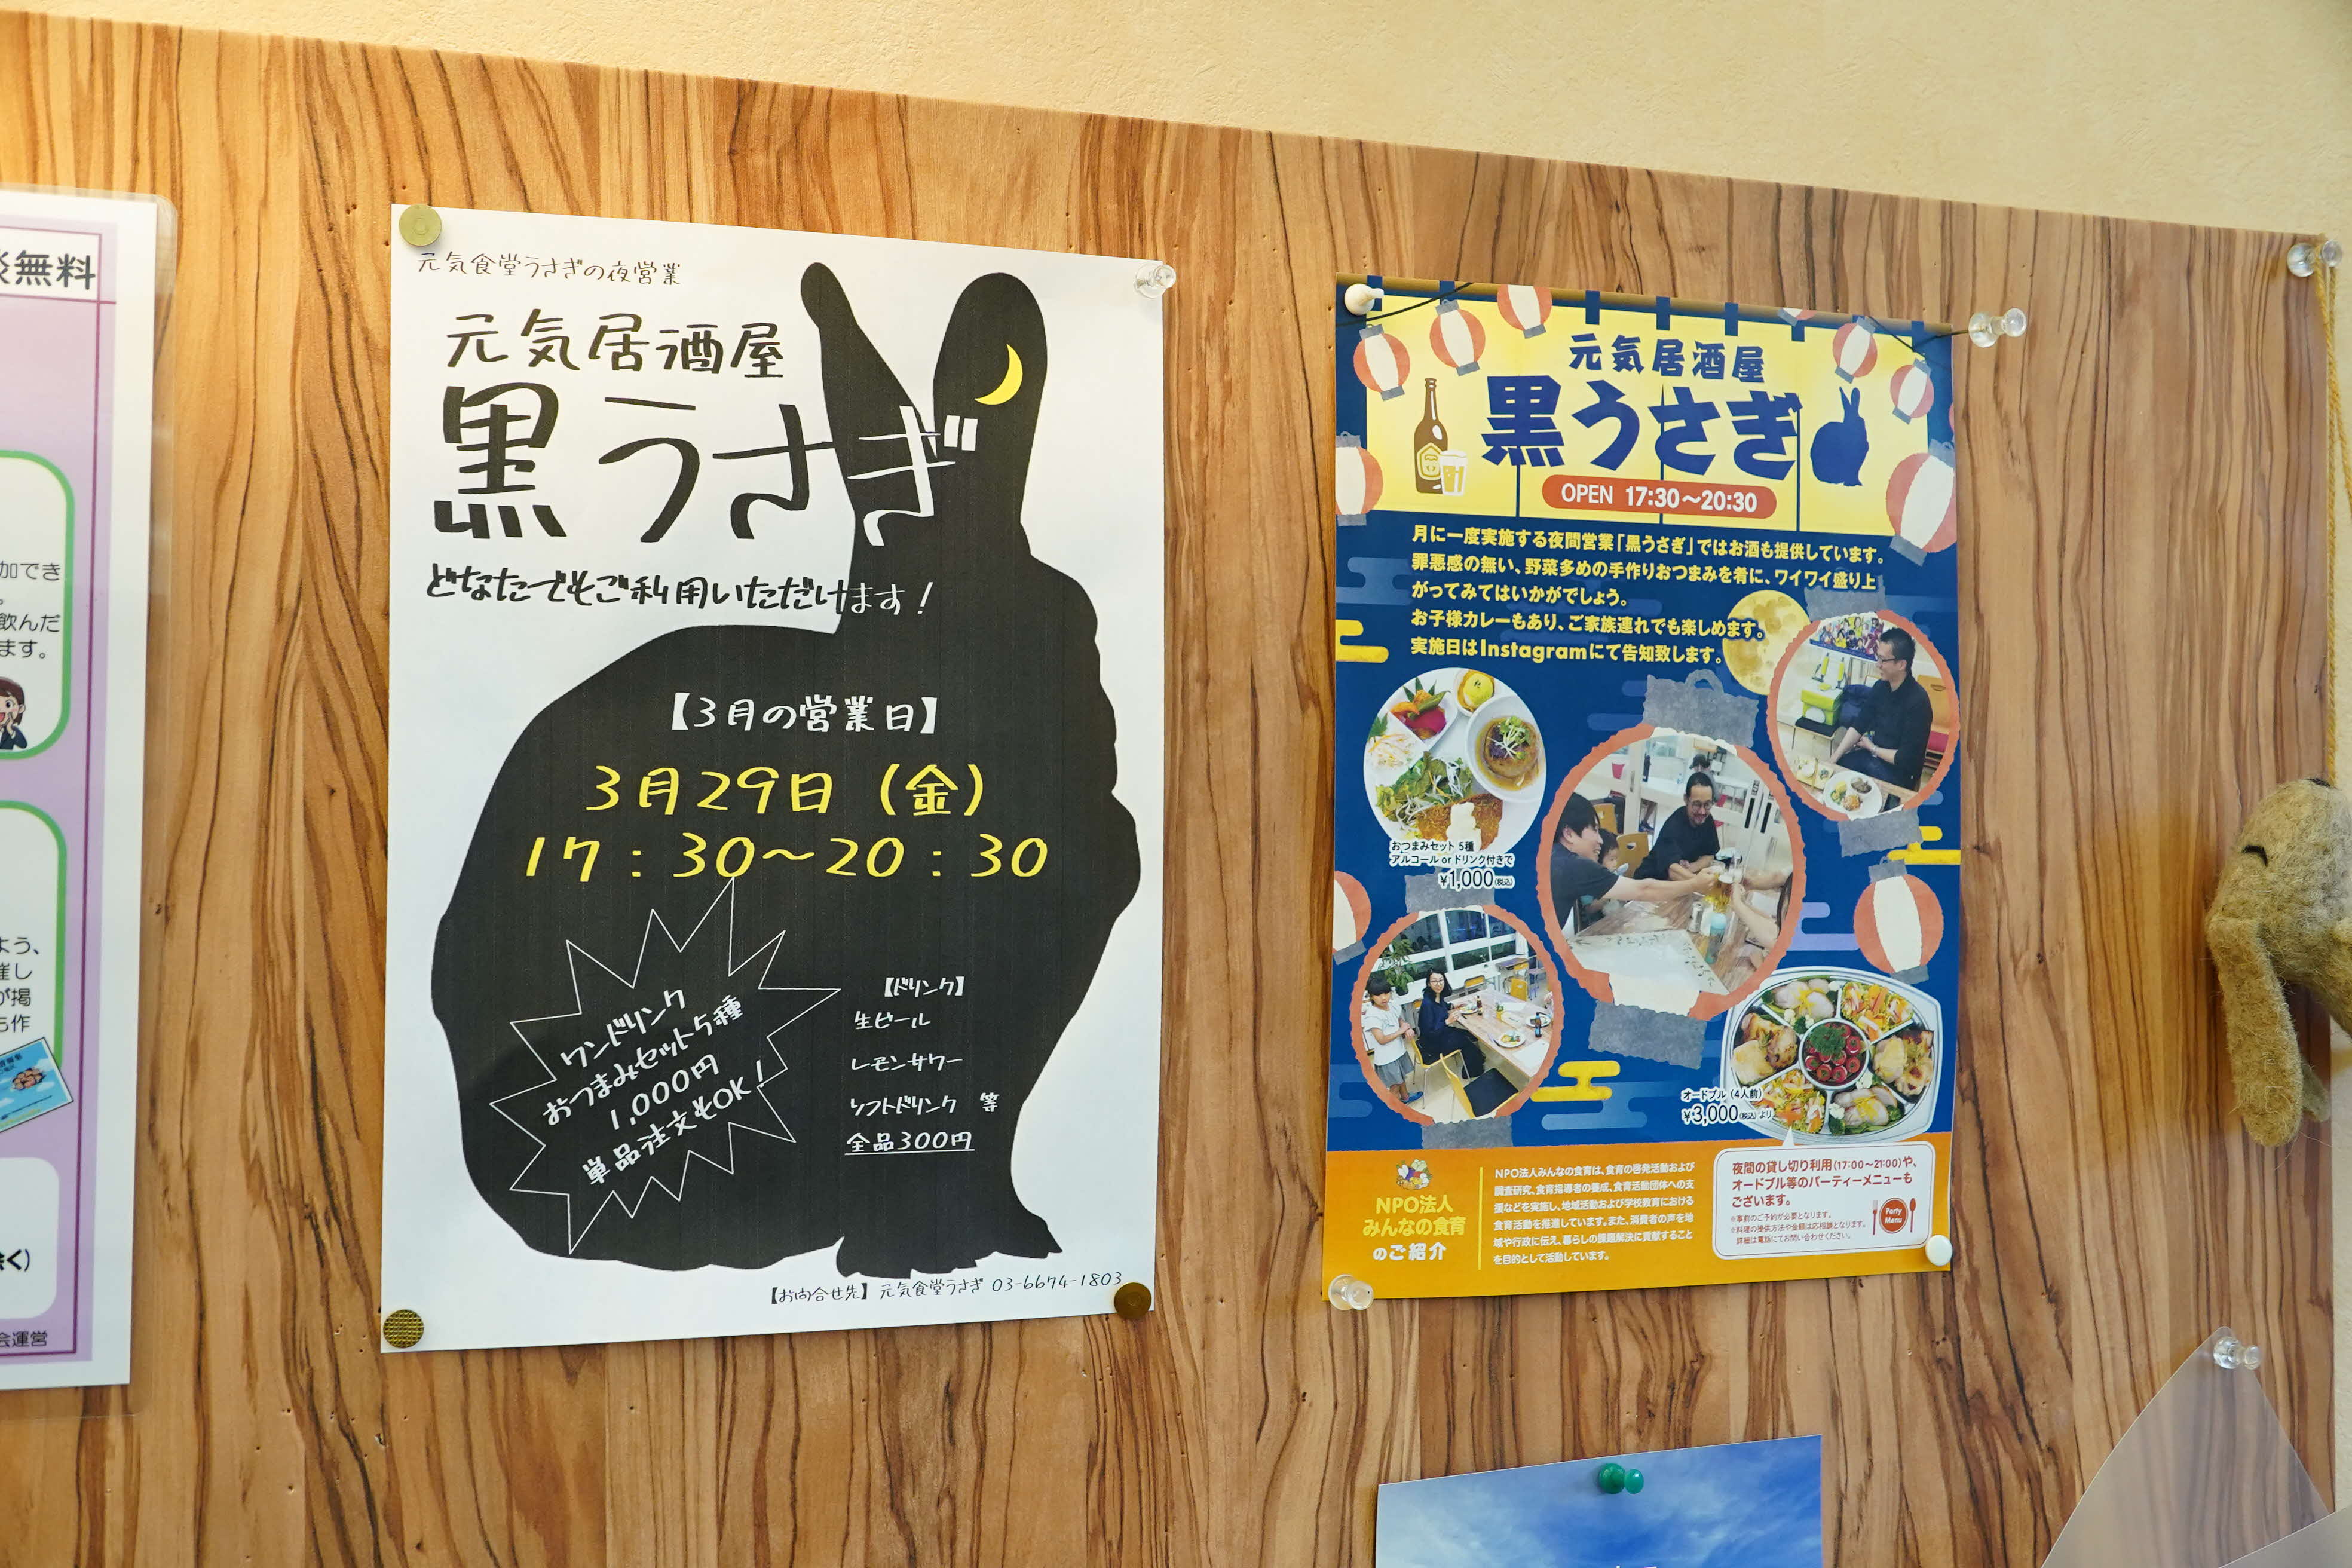 談無料
加でき
。
飲んだ
ます。
よう、
催し
が掲
ら作
除く）
会運営
元気食堂うさぎの夜営業
元気居酒屋
黒うさぎ
どなたでもご利用いただけます！
【3月の営業日】
3月29日（金）
17：30～20：30
ワンドリンク
おつまみセット5種
1,000円
単品注文もOK！
【ドリンク】
生ビール
レモンサワー
ソフトドリンク　等
全品300円
【お問合せ先】元気食堂うさぎ 03-6674-1803
元気居酒屋
黒うさぎ
OPEN 17:30～20:30
月に一度実施する夜間営業「黒うさぎ」ではお酒も提供しています。
罪悪感の無い、野菜多めの手作りおつまみを肴に、ワイワイ盛り上
がってみてはいかがでしょう。
お子様カレーもあり、ご家族連れでも楽しめます。
実施日はInstagramにて告知致します。
おつまみセット 5種
アルコール or ドリンク付きで
¥1,000(税込)
オードブル（4人前）
¥3,000(税込)より
NPO法人
みんなの食育
のご紹介
NPO法人みんなの食育は、食育の啓発活動および
調査研究、食育指導者の養成、食育活動団体への支
援などを実施し、地域活動および学校教育における
食育活動を推進しています。また、消費者の声を地
域や行政に伝え、暮らしの課題解決に貢献すること
を目的として活動しています。
夜間の貸し切り利用(17:00～21:00)や、
オードブル等のパーティーメニューも
ございます。
※事前のご予約が必要となります。
※料理の提供方法や金額は応相談となります。
詳細は電話にてお問い合わせください。
Party
Menu